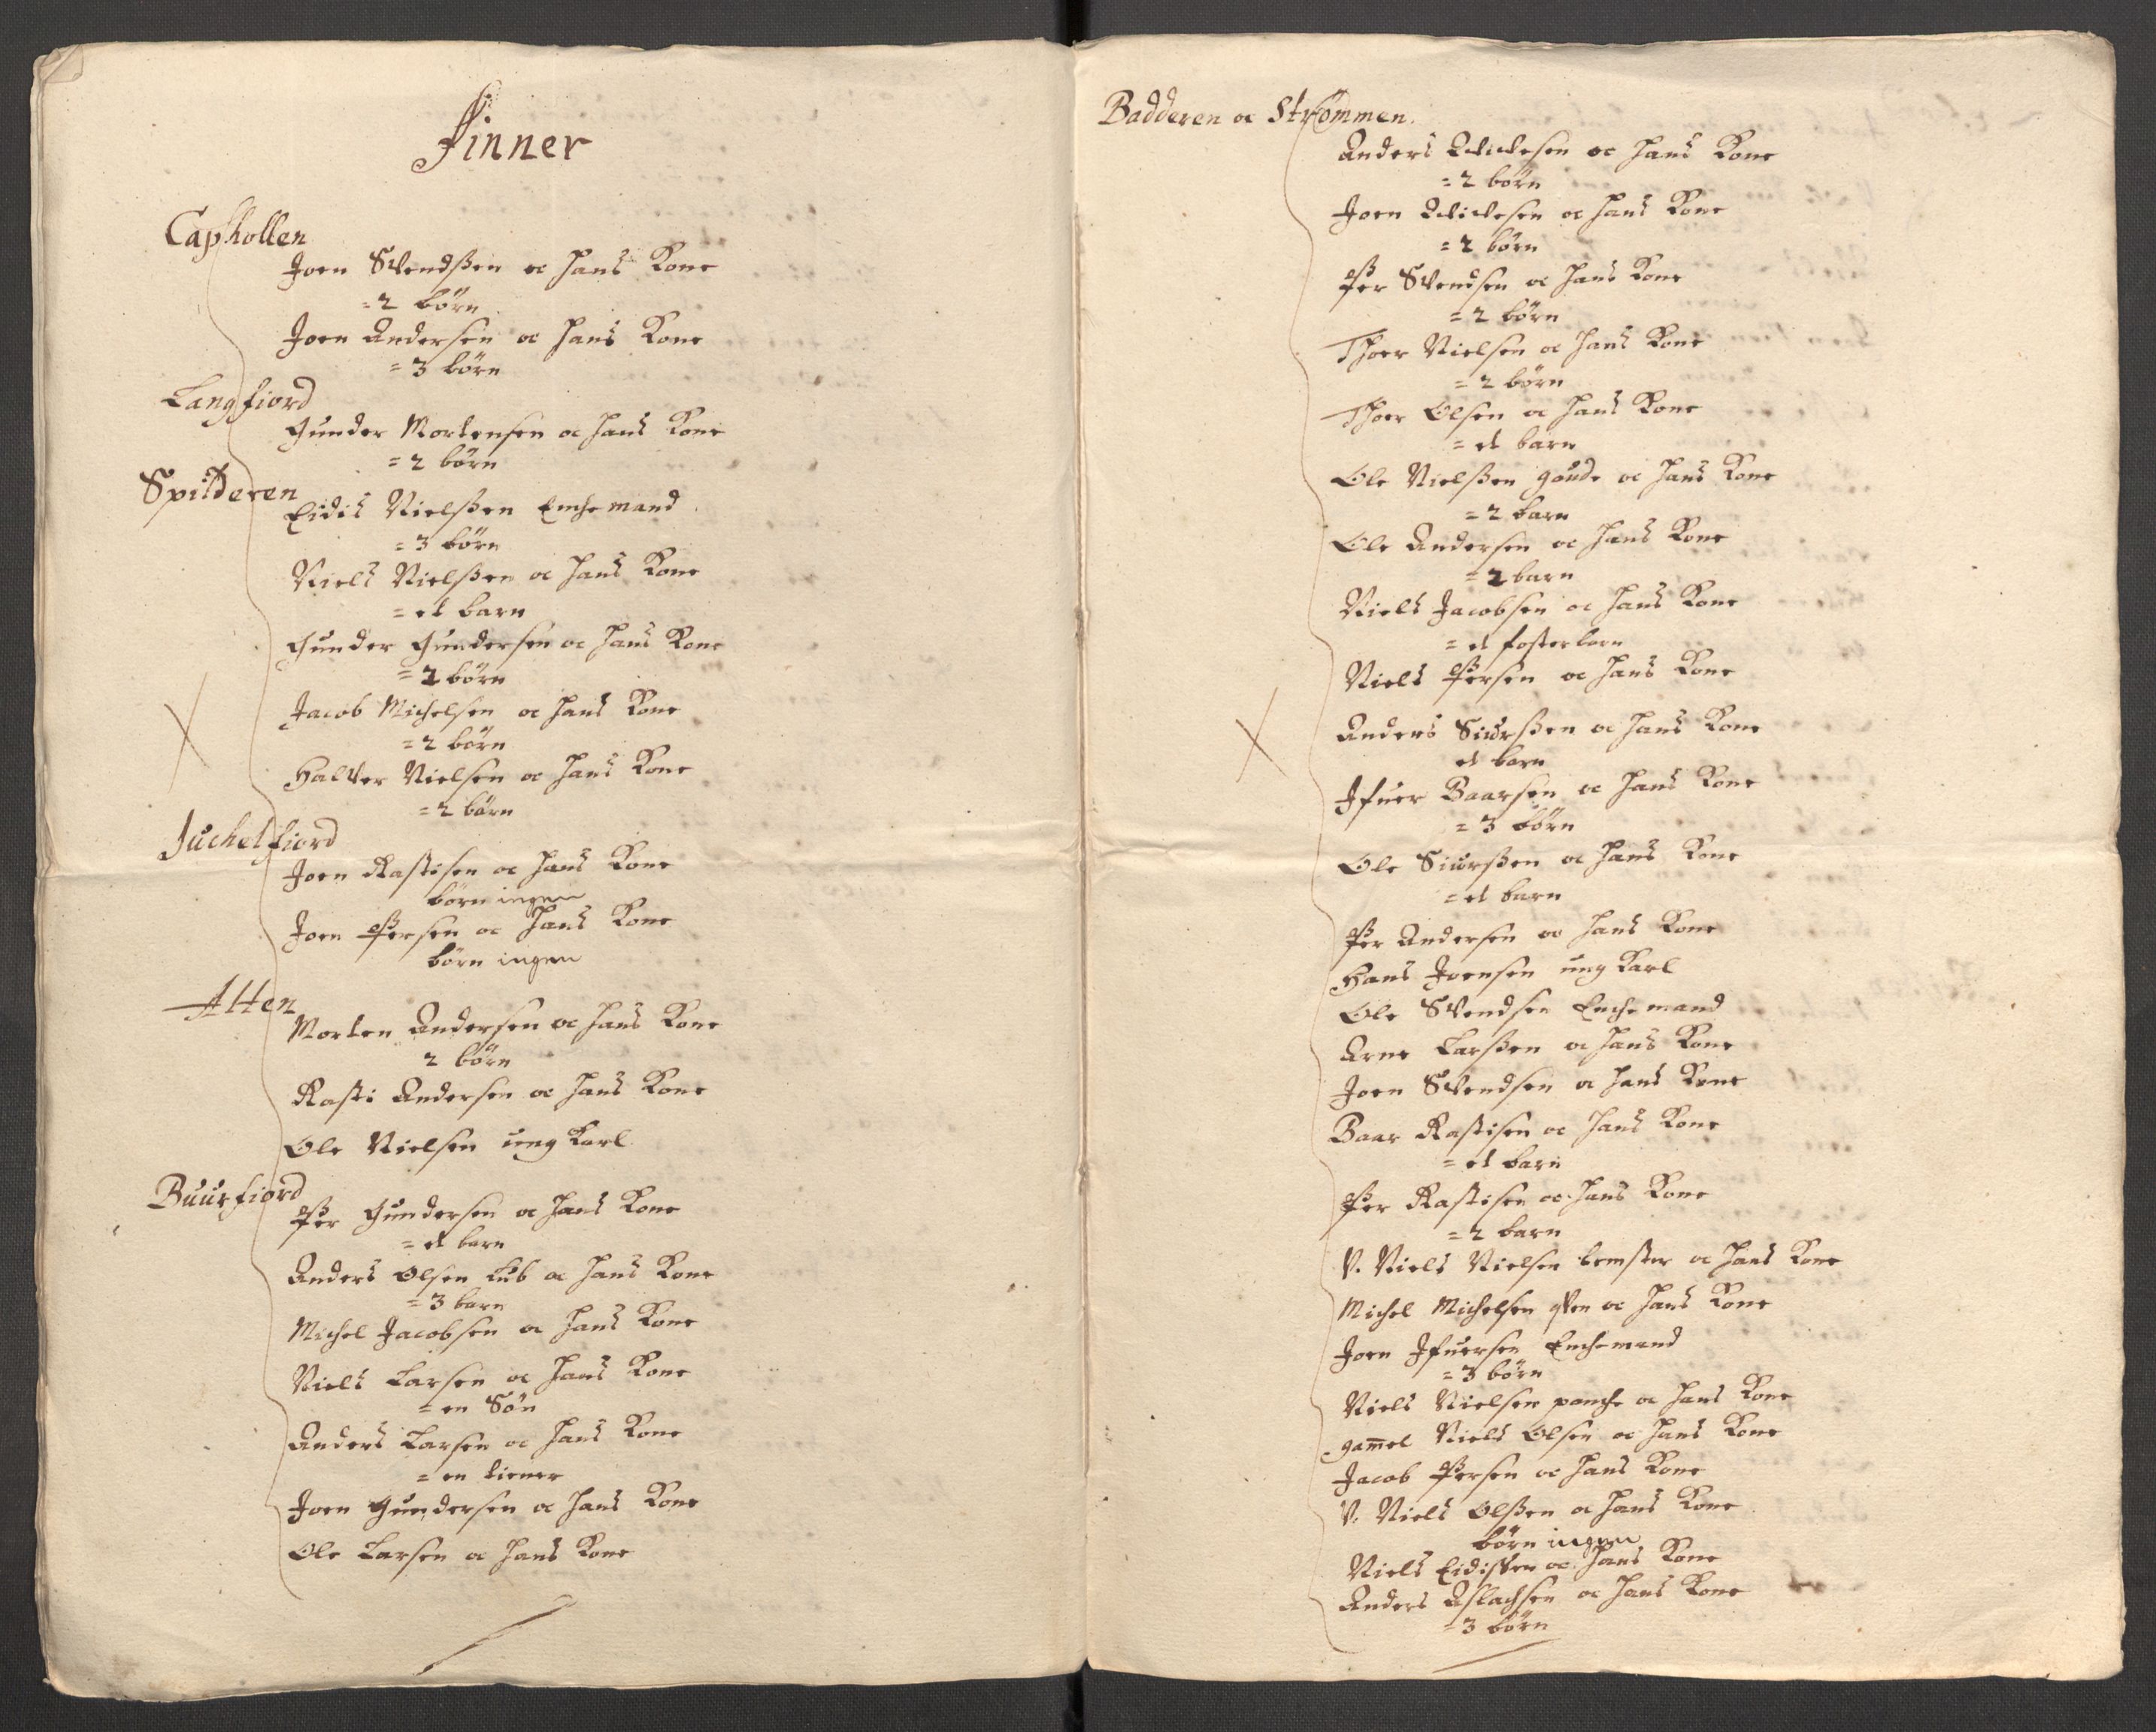 Finner
Capkollen
Joen Svendßen oc hans Kone
= 2 börn
Joen Andersen oc hans Kone
= 3 börn
Langfiord
Gunder Mortensen oc hans Kone
= 2 börn
Spilderen
Eidis Nielßen Enchemand
= 3 börn
Niels Nielßen oc hans Kone
= et barn
Gunder Gundersen oc hans Kone
= 2 börn
Jacob Michelsen oc hans Kone
= 2 börn
Halvor Nielsen oc hans Kone
= 2 börn
Juchelfiord
Joen Rastisen oc hans Kone
börn ingen
Joen Persen oc hans Kone
börn ingen
Alten
Morten Andersen oc hans Kone
2 börn
Rasti Andersen oc hans Kone
Ole Nielsen ung Karl
Buurfiord
Per Gundersen oc hans Kone
= et barn
Anders Olsen Lub oc hans Kone
= 3 barn
Michel Jacobsen oc hans Kone
Niels Larsen oc hans Kone
= en Sön
Anders Larsen oc hans Kone
= en tiener
Joen Gundersen oc hans Kone
Ole Larsen oc hans Kone
Badderen oc Strömmen.
Anders oc hans Kone
= 2 börn
Joen oc hans Kone
= 2 börn
Per Svendsen oc hans Kone
= 2 börn
Thoer Nielsen oc hans Kone
= 2 börn
Thoer Olsen oc hans Kone
= et barn
Ole Nielßen goude oc hans Kone
= 2 barn
Ole Andersen oc hans Kone
= 2 barn
Niels Jacobsen oc hans Kone
= et fosterbarn
Niels Persen oc hans Kone
Anders Siurßen oc hans Kone
et barn
Ifuer Baarsen oc hans Kone
= 3 börn
Ole Siurßen oc hans Kone
= et barn
Per Andersen oc hans Kone
Hans Joensen ung Karl
Ole Svendsen Enchemand
Arne Larßen oc hans Kone
Joen Svendsen oc hans Kone
Baar Rastisen oc hans Kone
= et barn
Per Rastisen oc hans Kone
= 2 barn
V. Niels Nielsen oc hans Kone
Michel Michelsen qven oc hans Kone
Joen Ifuersen Enchemand
= 3 börn
Niels Nielsen panche oc hans Kone
gam̅el Niels Olsen oc hans Kone
Jacob Persen oc hans Kone
V. Niels Olßen oc hans Kone
börn ingen
Niels Eidissen oc hans Kone
Anders Aslachsen oc hans Kone
= 3 börn